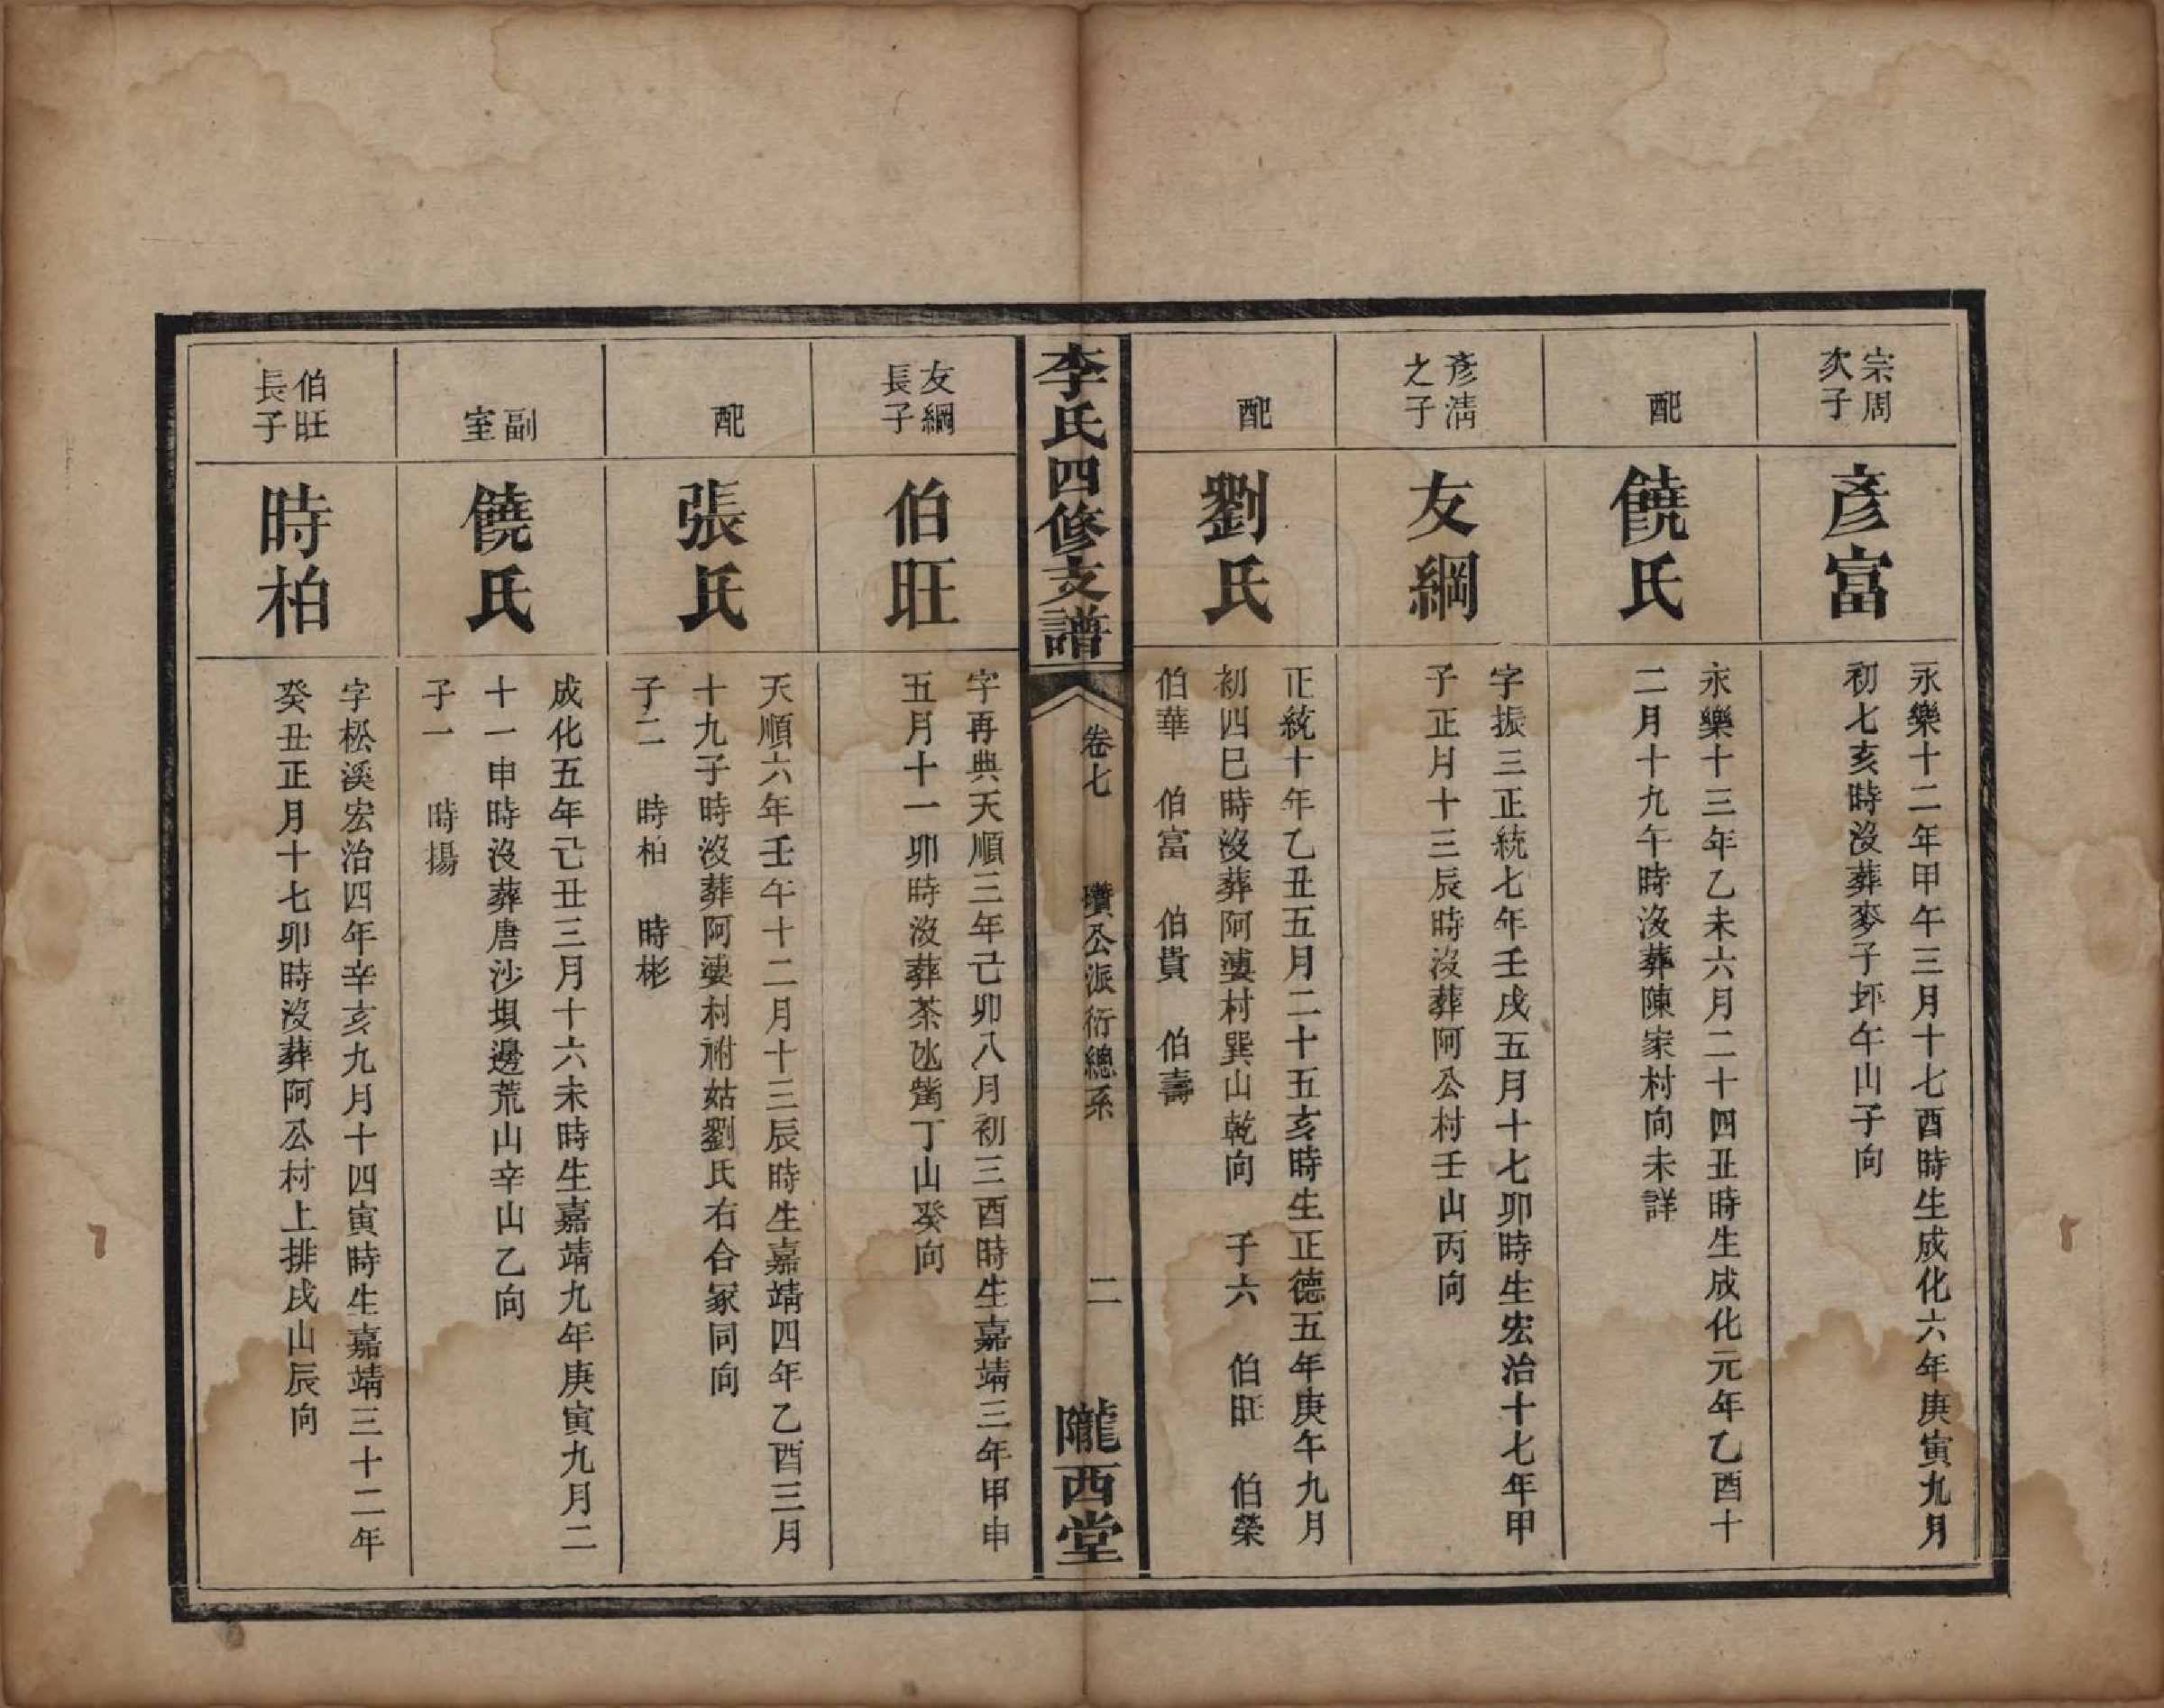 宗周
次子
彥富
永樂十二年甲午三月十七酉時生成化六年庚寅九月
初七亥時沒葬麥子坏午山子向
配
饒氏
永樂十三年乙未六月二十四丑時生成化元年乙酉十
二月十九午時沒葬陳家村向未詳
彥清
之子
友綱
字振三正統七年壬戌五月十七卯時生宏治十七年甲
子正月十三辰時沒葬阿公村壬山丙向
配
劉氏
正統十年乙丑五月二十五亥時生正德五年庚午九月
初四巳時沒葬阿婆村巽山乾向 子六 伯旺 伯榮
伯華 伯富 伯貴 伯壽
李氏四修支譜
卷七 瓚公派衍總系 二
隴西堂
友綱
長子
伯旺
字再典天順三年己卯八月初三酉時生嘉靖三年甲申
五月十一卯時沒葬茶氹嘴丁山癸向
配
張氏
天順六年壬午十二月十三辰時生嘉靖四年乙酉三月
十九子時沒葬阿婆村祔姑劉氏右合冢同向
子二 時柏 時彬
副
室
饒氏
成化五年己丑三月十六未時生嘉靖九年庚寅九月二
十一申時沒葬唐沙埧邊荒山辛山乙向
子一 時揚
伯旺
長子
時柏
字松溪宏治四年辛亥九月十四寅時生嘉靖三十二年
癸丑正月十七卯時沒葬阿公村上排戌山辰向